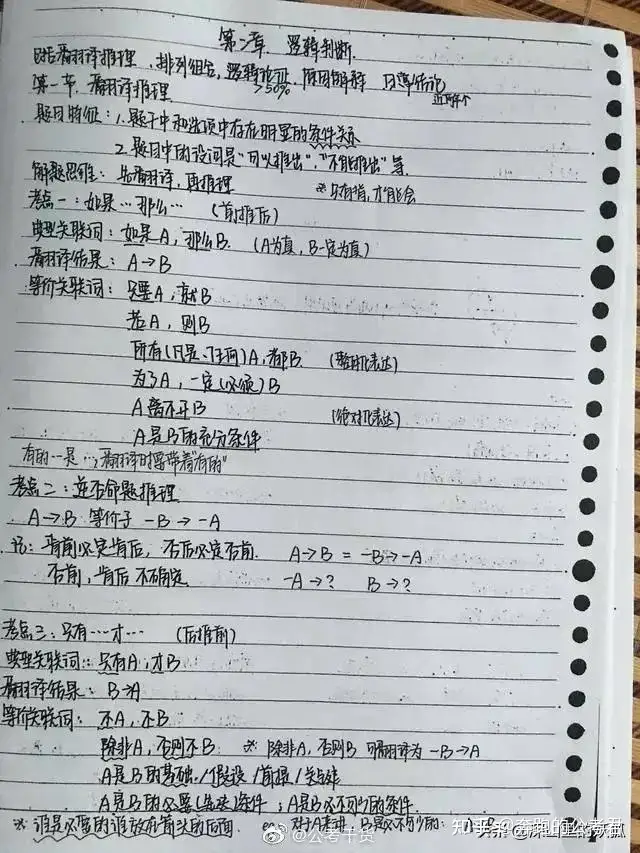 第二章. 逻辑判断.
包括翻译推理、排列组合, 逻辑论证, 原因解释 日常结论
>50%
近两年个
第一节. 翻译推理
题目特征: 1. 题干中和选项中存在明显的条件关系
2. 题目中的设问是"可以推出","不能推出"等.
解题思维: 先翻译, 再推理 ※只有肯, 才能会
考点一: 如果…那么… (前推后)
典型关联词: 如果A, 那么B. (A为真, B一定为真)
翻译结果: A→B
等价关联词: 只要A, 就B
若A, 则B
所有(凡是、任何)A, 都B. (绝对化表达)
为了A, 一定(必须)B
A离不开B (绝对化表达)
A是B的充分条件
有的…是…, 翻译时需带着"有的"
考点二: 逆否命题推理.
A→B 等价于 -B→-A
记: 肯前必定肯后, 否后必定否前. A→B = -B→-A
否前, 肯后 不确定 -A→? B→?
考点三: 只有…才… (后推前)
典型关联词: 只有A, 才B
翻译结果: B→A
等价关联词: 不A, 不B
除非A, 否则不B. ※ 除非A, 否则B 可翻译为 -B→A
A是B的基础/假设/前提/关键
A是B的必要(先决)条件; A是B必不可少的条件.
※ 谁是必要的谁放在箭头的后面. 对A来讲, B是必不可少的:
@公考干货
知乎 @奔跑的公考君